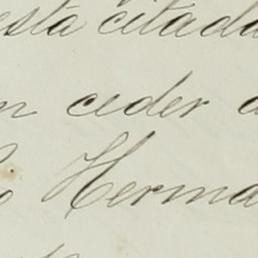 esta citada
n ceder a
o Herma